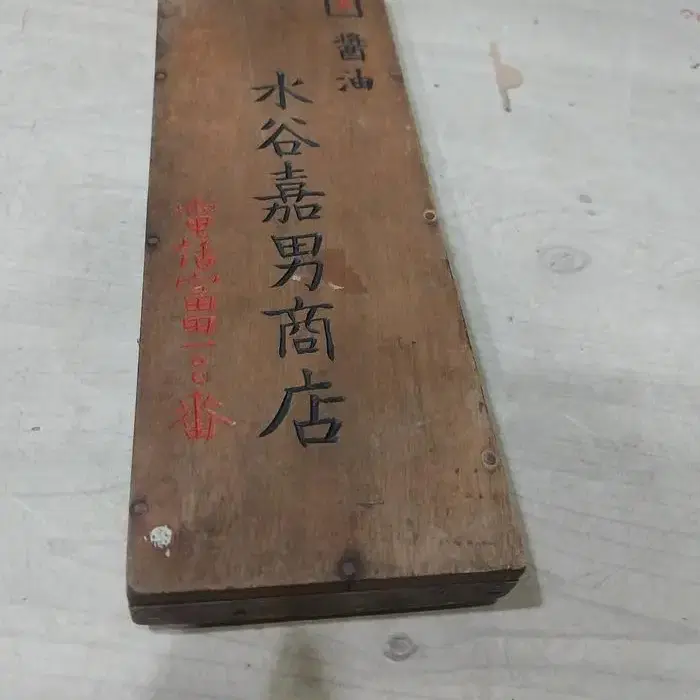 醤油
水谷嘉男商店
電話富田一〇〇番